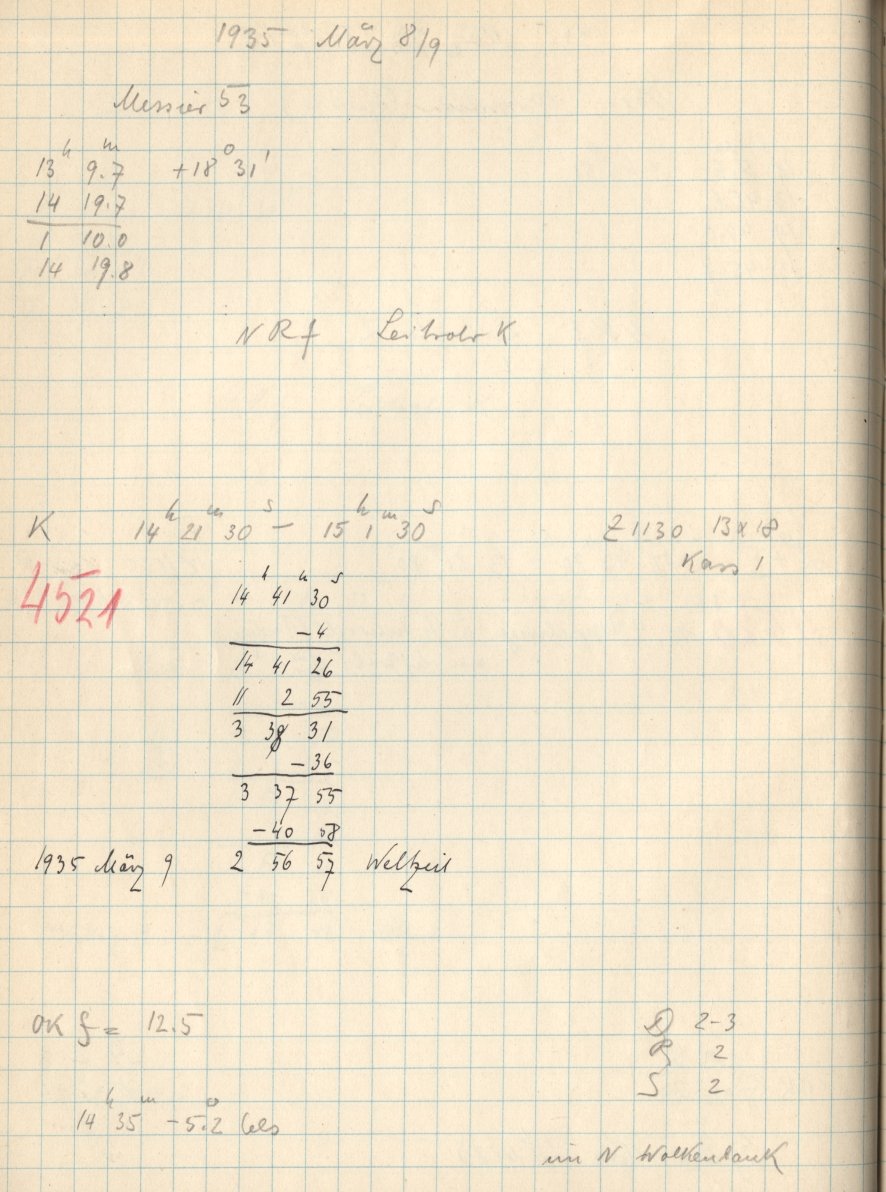 1935 März 8/9
Messier 53
13h 9.m7 +18° 31'
14 19.7
1 10.0
14 19.8
N R f Leitrohr K
K 14h 21m 30s – 15h 1m 30s Z 1130 13x18
Kass 1
4521
14h 41m 30s
– 4
14 41 26
11 2 55
3 38 31
– 36
3 37 55
– 40 58
1935 März 9 2 56 57 Weltzeit
OK f = 12.5
2-3
R 2
S 2
14h 35m – 5.°2 Cels
im N Wolkenbank